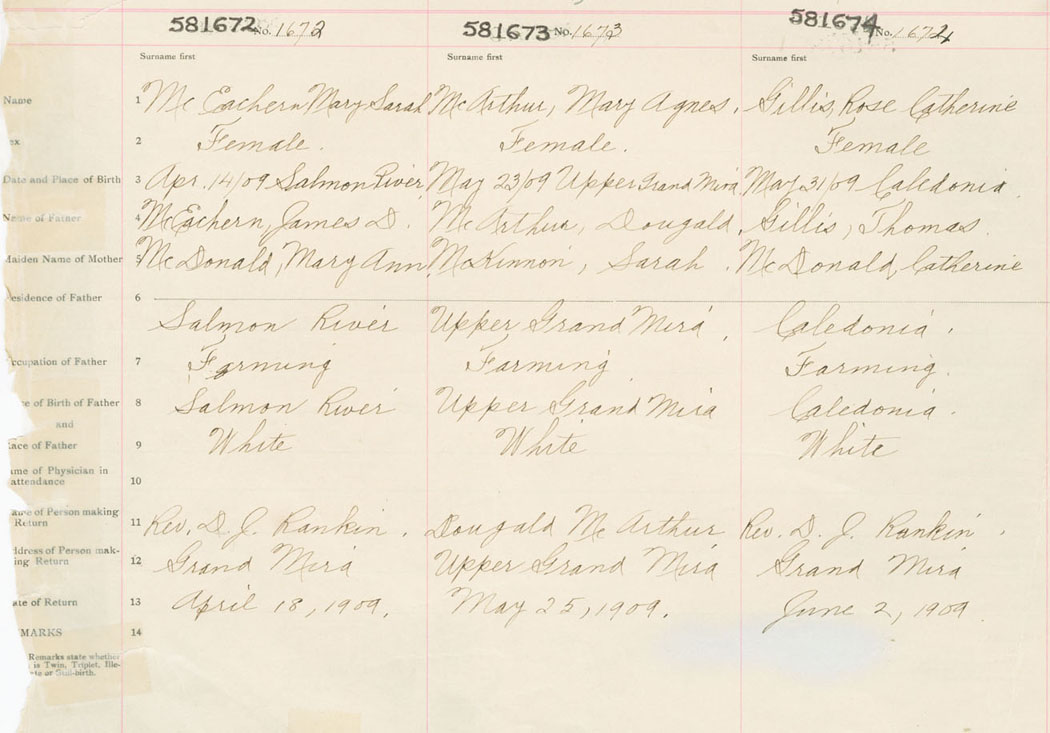 581672 No. 1672 581673 No. 1673 581674 No. 1674
Surname first Surname first Surname first
Name 1 McEachern Mary Sarah McArthur, Mary Agnes. Gillis, Rose Catherine
ex 2 Female. Female. Female
Date and Place of Birth 3 Apr. 14/09 Salmon River May 23/09 Upper Grand Mira May 31/09 Caledonia.
Name of Father 4 McEachern, James D. McArthur, Dougald. Gillis, Thomas.
Maiden Name of Mother 5 McDonald, Mary Ann McKinnon, Sarah. McDonald, Catherine
esidence of Father 6
Salmon River Upper Grand Mira. Caledonia.
ccupation of Father 7 Farming Farming Farming.
ce of Birth of Father 8 Salmon River Upper Grand Mira Caledonia.
and
Race of Father 9 White White White
ame of Physician in
attendance 10
ame of Person making
Return 11 Rev. D. J. Rankin. Dougald McArthur Rev. D. J. Rankin.
ddress of Person mak-
ing Return 12 Grand Mira Upper Grand Mira Grand Mira
ate of Return 13 April 18, 1909. May 25, 1909. June 2, 1909.
MARKS 14
Remarks state whether
is Twin, Triplet, Ille-
ate or Still-birth.